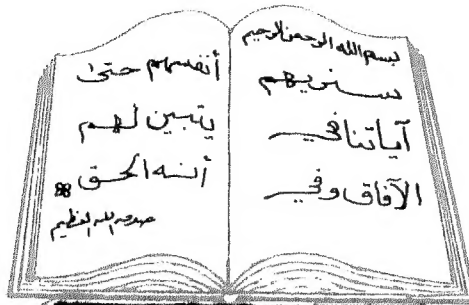 بسم الله الرحمن الرحيم
سنريهم
آياتنا في
الآفاق وفي
أنفسهم حتى
يتبين لهم
أنه الحق
صدق الله العظيم